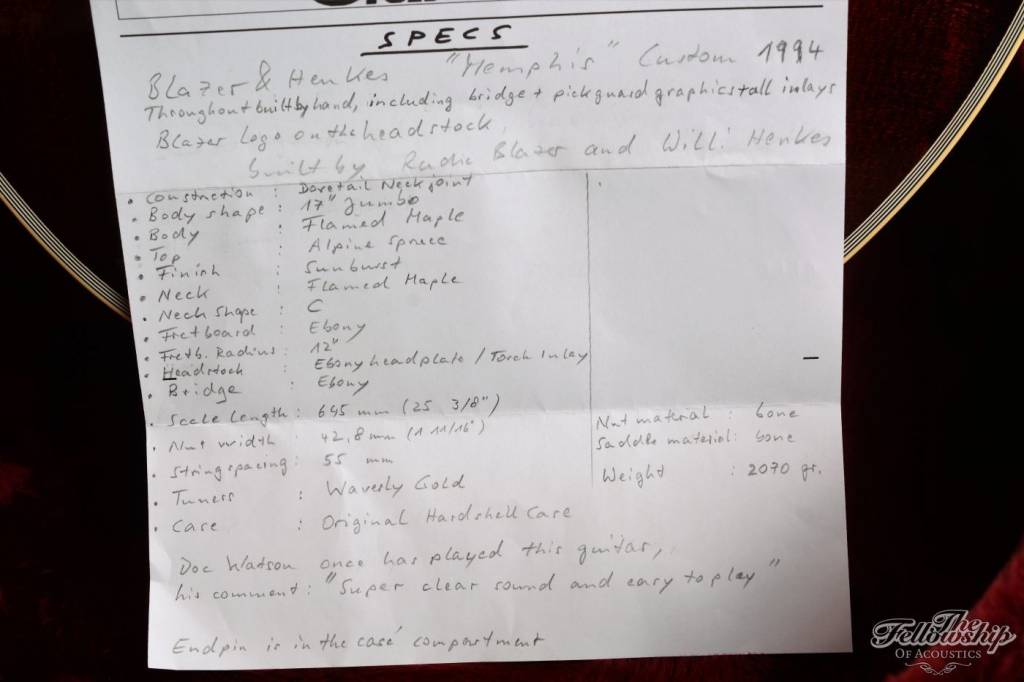 SPECS
Blazer & Henkes "Memphis" Custom 1994
Throughout built by hand, including bridge + pickguard graphics + all inlays
Blazer Logo on the headstock,
built by Rudie Blazer and Willi Henkes
• Construction : Dovetail Neck joint
• Body shape : 17" Jumbo
• Body : Flamed Maple
• Top : Alpine Spruce
• Finish : Sunburst
• Neck : Flamed Maple
• Neck Shape : C
• Fretboard : Ebony
• Fretb. Radius : 12"
• Headstock : Ebony headplate / Torch Inlay
• Bridge : Ebony
• Scale length : 645 mm (25 3/8")
• Nut width : 42,8 mm (1 11/16")
• String spacing : 55 mm
• Tuners : Waverly Gold
• Case : Original Hardshell Case
Nut material : bone
Saddle material : bone
Weight : 2070 gr.
Doc Watson once has played this guitar,
his comment : "Super clear sound and easy to play"
Endpin is in the case compartment
The
Fellowship
OF ACOUSTICS